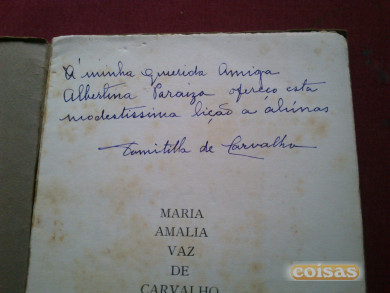 Á minha querida Amiga
Albertina Paraiza ofereço esta
modestissima lição a alunas
Domitilla de Carvalho
MARIA
AMALIA
VAZ
DE
CARVALHO
coisas